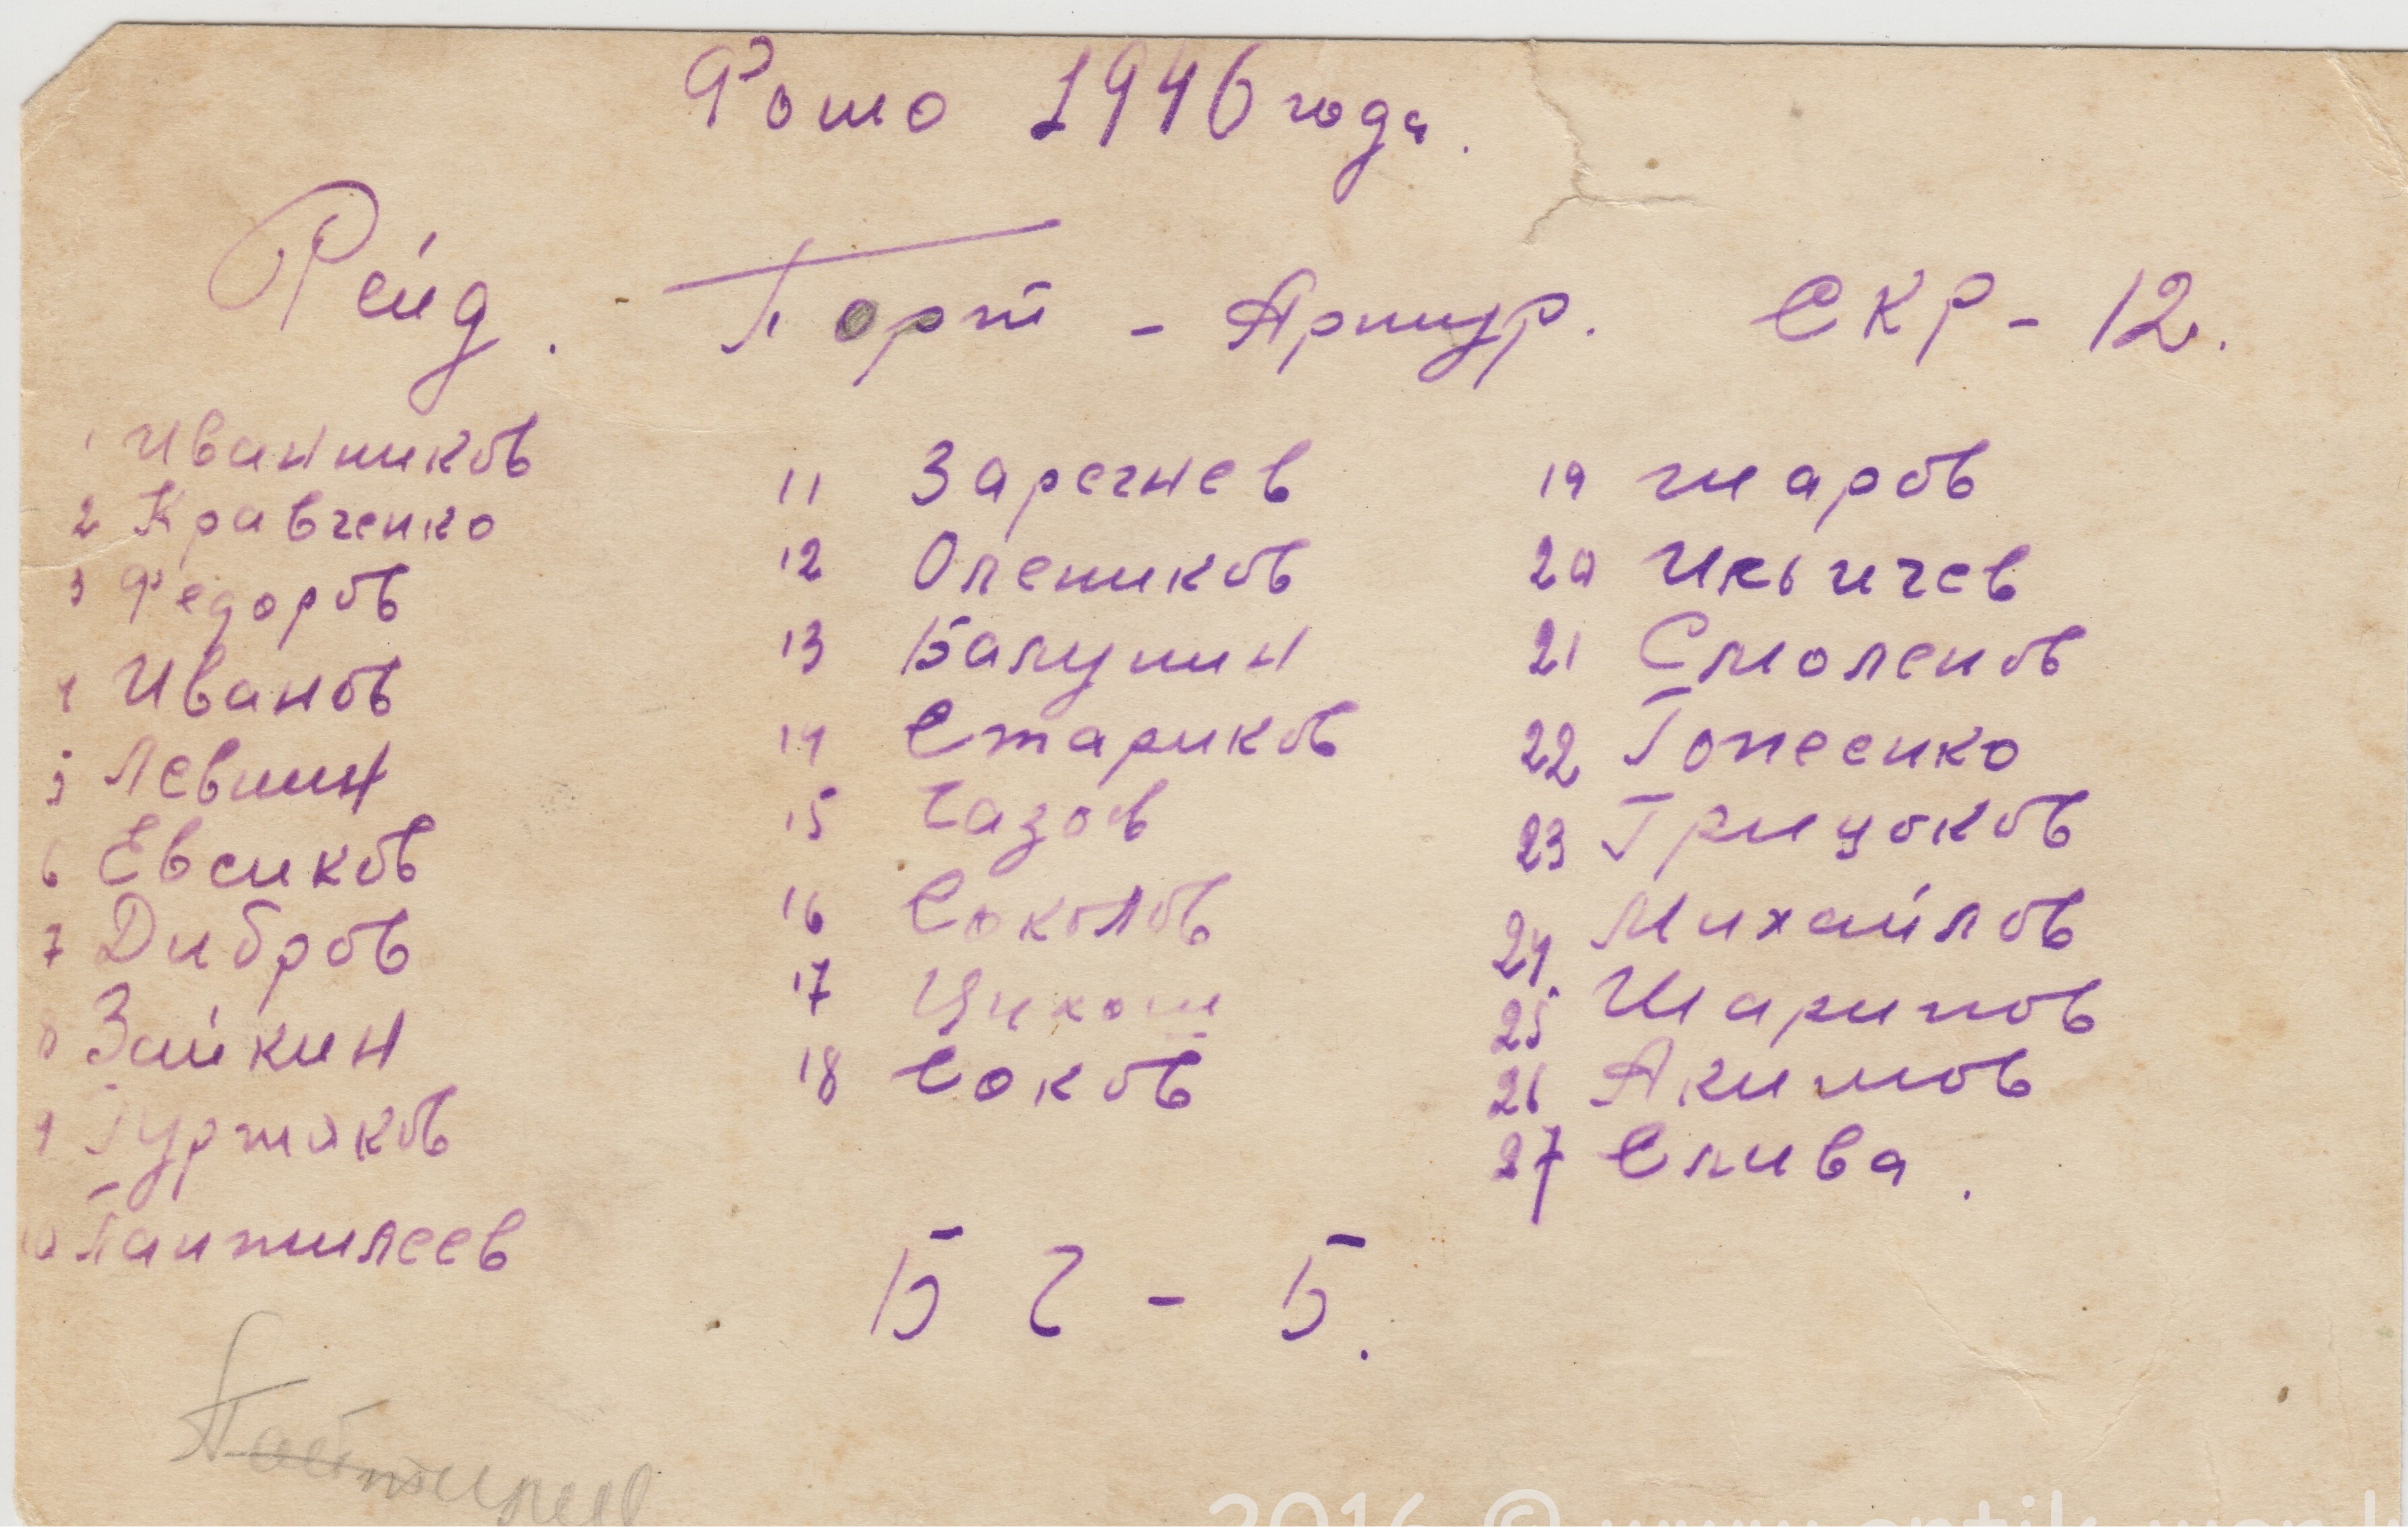 Фото 1946 года.
Рейд. Порт - Артур. СКР - 12.
1 Иванников
2 Кравченко
3 Федоров
4 Иванов
5 Левшин
6 Евсиков
7 Дибров
8 Зайкин
9 Гуртяков
10 Пантилеев
11 Заречнев
12 Олеников
13 Балунин
14 Стариков
15 Чазов
16 Соколов
17
18 Соков
19 Шаров
20
21 Смоленов
22
23 Грицоков
24 Михайлов
25 Шарипов
26 Акимов
27 Слива.
БЧ - 5.
2016 ©